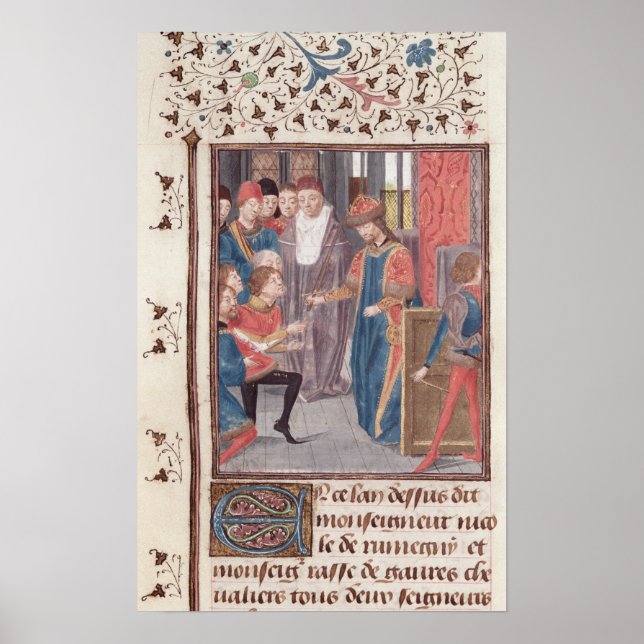 En ce lan dessus dit
monseigneur nico
le de rumegny et
monseigr rasse de gaures che
ualiers tous deux seigneurs